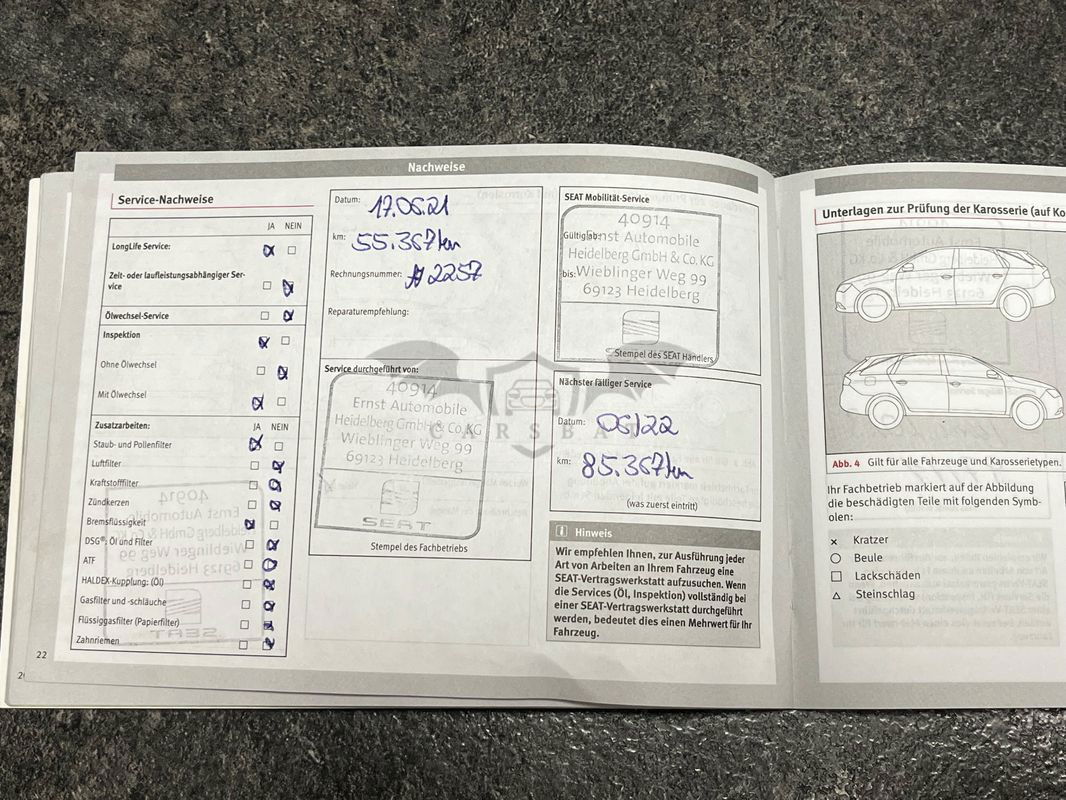 Nachweise
Service-Nachweise
JA NEIN
LongLife Service:
Zeit- oder laufleistungsabhängiger Ser-
vice
Ölwechsel-Service
Inspektion
Ohne Ölwechsel
Mit Ölwechsel
Zusatzarbeiten: JA NEIN
Staub- und Pollenfilter
Luftfilter
Kraftstofffilter
Zündkerzen
Bremsflüssigkeit
DSG®: Öl und Filter
ATF
HALDEX-Kupplung: (Öl)
Gasfilter und -schläuche
Flüssiggasfilter (Papierfilter)
Zahnriemen
22
Datum: 17.06.21
km: 55.367km
Rechnungsnummer: 2257
Reparaturempfehlung:
Service durchgeführt von:
40914
Ernst Automobile
Heidelberg GmbH & Co.KG
Wieblinger Weg 99
69123 Heidelberg
SEAT
Stempel des Fachbetriebs
SEAT Mobilität-Service
40914
Gültig ab: Ernst Automobile
Heidelberg GmbH & Co.KG
bis: Wieblinger Weg 99
69123 Heidelberg
Stempel des SEAT Händlers
Nächster fälliger Service
Datum: 06/22
km: 85.367km
(was zuerst eintritt)
CARSBAT
i Hinweis
Wir empfehlen Ihnen, zur Ausführung jeder
Art von Arbeiten an Ihrem Fahrzeug eine
SEAT-Vertragswerkstatt aufzusuchen. Wenn
die Services (Öl, Inspektion) vollständig bei
einer SEAT-Vertragswerkstatt durchgeführt
werden, bedeutet dies einen Mehrwert für Ihr
Fahrzeug.
Unterlagen zur Prüfung der Karosserie (auf Ko
Abb. 4 Gilt für alle Fahrzeuge und Karosserietypen.
Ihr Fachbetrieb markiert auf der Abbildung
die beschädigten Teile mit folgenden Symb-
olen:
× Kratzer
○ Beule
□ Lackschäden
△ Steinschlag